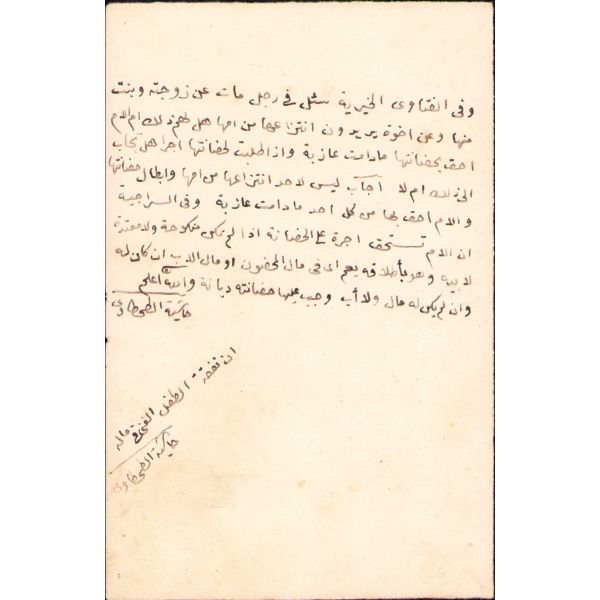 وفى الفتاوى الخيرية سئل فى رجل مات عن زوجته وبنت
منها وعن اخوة يريدون انتزاعها من امها هل لهم ذلك ام الام
احق بحضانتها مادامت عازبة واذا طلبت لحضانتها اجرا هل تجاب
الى ذلك ام لا اجاب ليس لاحد انتزاعها من امها وابطال حضانتها
والام احق بها من كل احد مادامت عازبة وفى السراجية
ان الام تستحق اجرة على الحضانة اذا لم تكن منكوحة ولا معتدة
لابيه وهو بأطلاقه يعم اى فى مال المحضون او مال الاب ان كان له
وان لم يكن له مال ولا أب وجب عليها حضانته ديانة والله اعلم
حاشية الطحطاوى
ان نفقة الطفل الغنى فى ماله
حاشية الطحطاوى